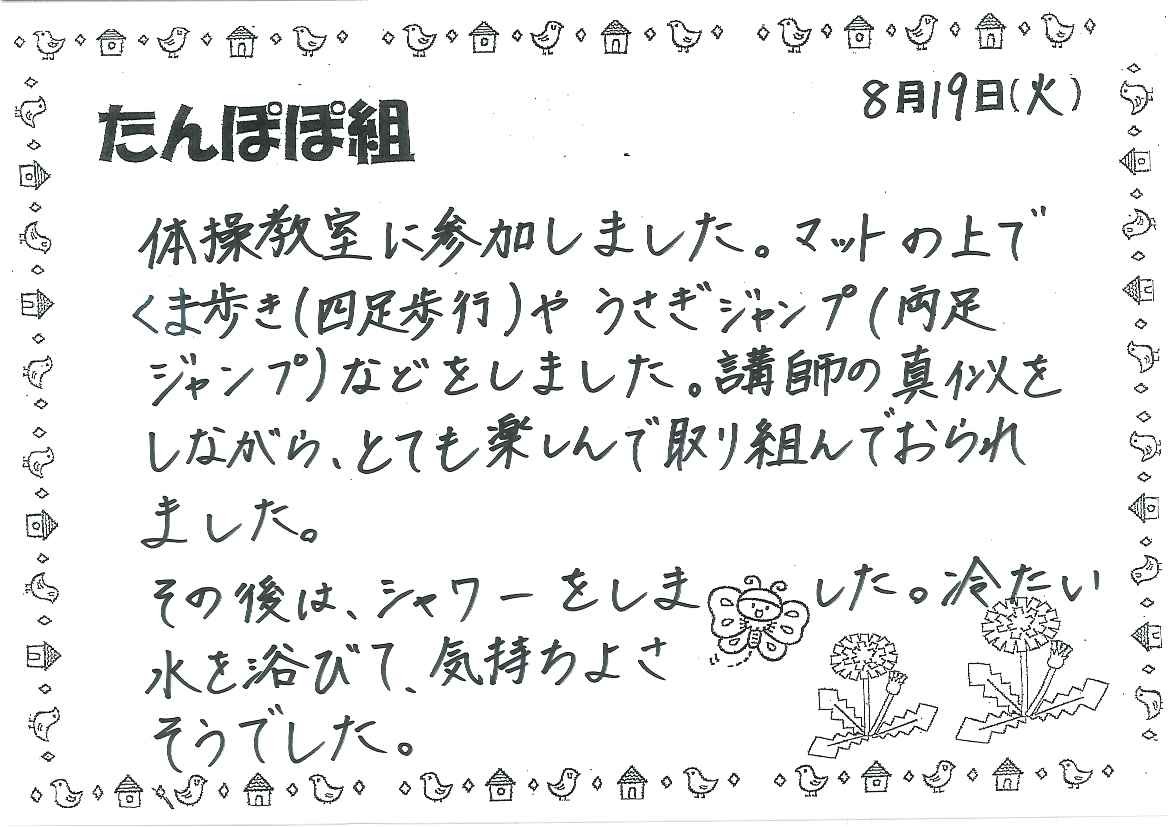 8月19日(火)
たんぽぽ組
体操教室に参加しました。マットの上で
くま歩き(四足歩行)や うさぎジャンプ(両足
ジャンプ)などをしました。講師の真似を
しながら、とても楽しんで取り組んでおられ
ました。
その後は、シャワーをしました。冷たい
水を浴びて、気持ちよさ
そうでした。